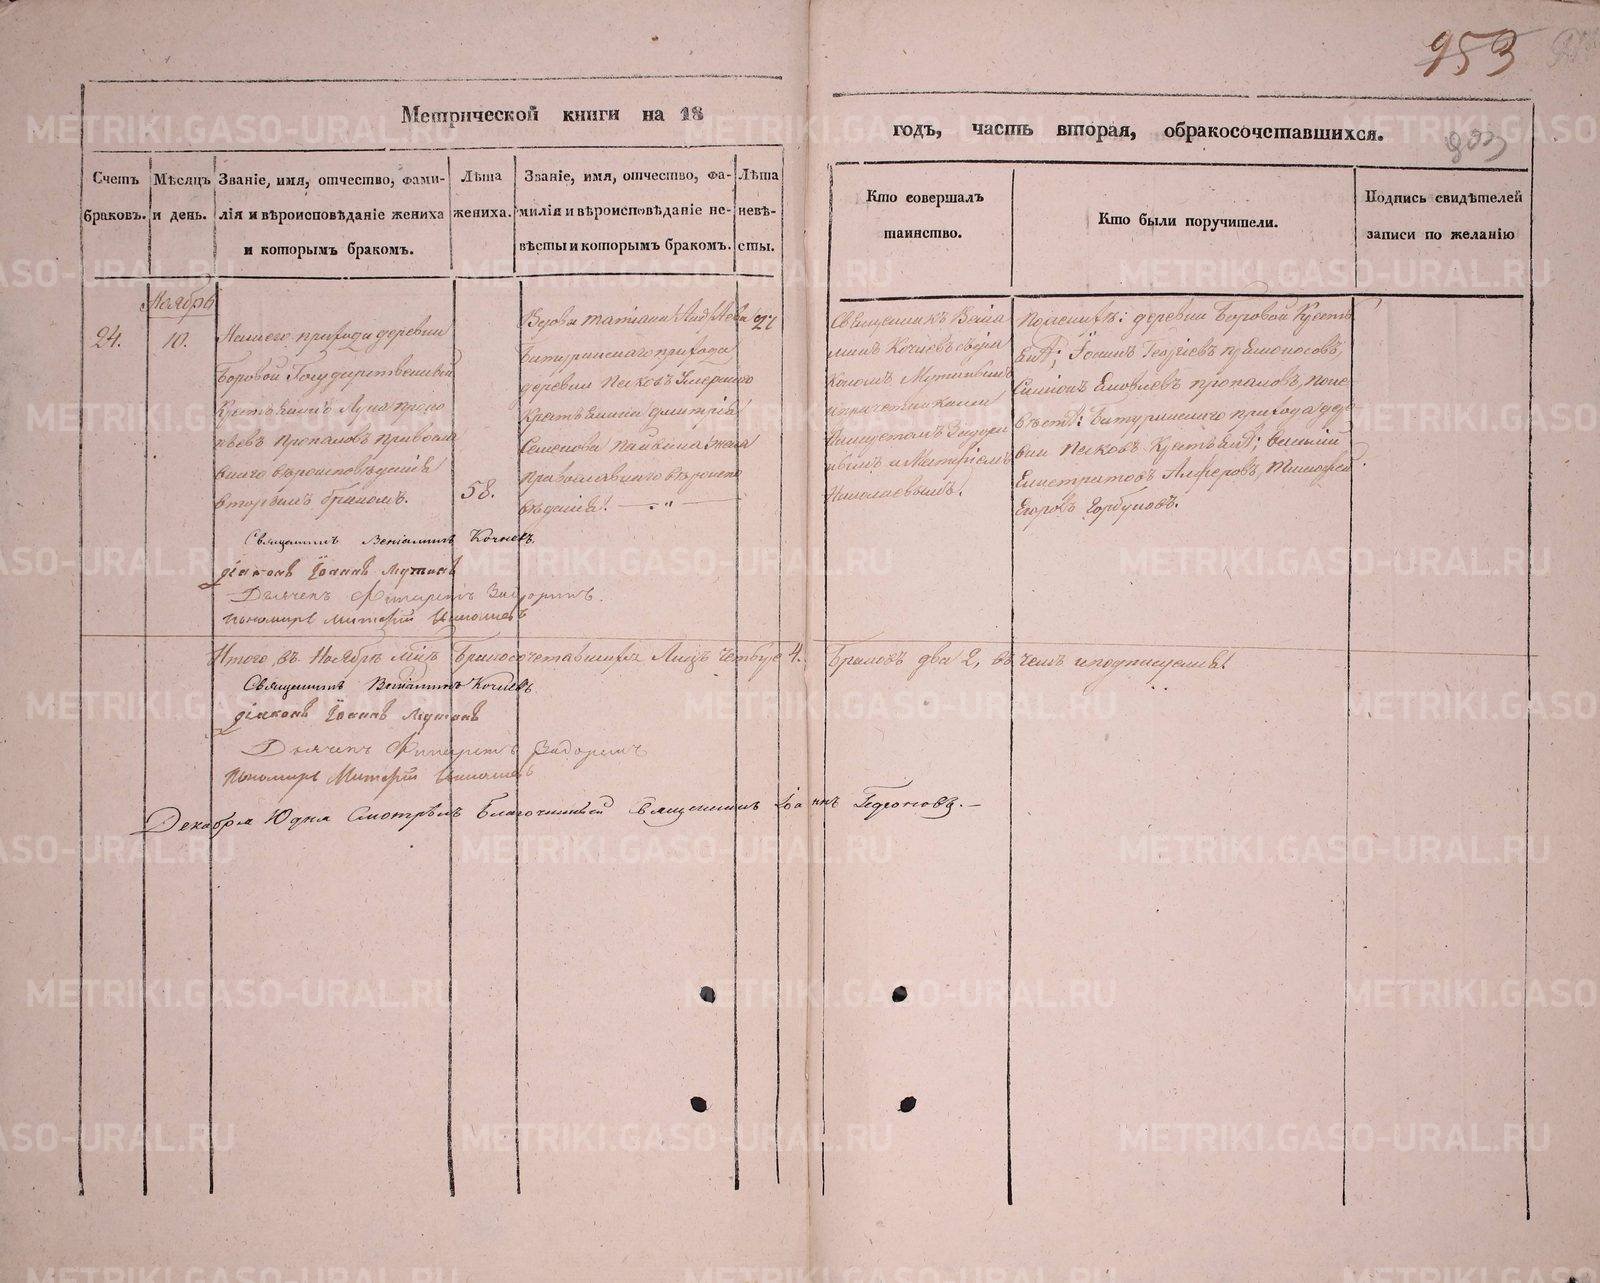 953
Метрической книги на 18
годъ, часть вторая, обракосочетавшихся.
803
Счетъ браковъ.
Мѣсяцъ и день.
Званіе, имя, отчество, фами-
лія и вѣроисповѣданіе жениха
и которымъ бракомъ.
Лѣта
жениха.
Званіе, имя, отчество, фа-
милія и вѣроисповѣданіе не-
вѣсты и которымъ бракомъ.
Лѣта
невѣ-
сты.
Кто совершалъ
таинство.
Кто были поручители.
Подпись свидѣтелей
записи по желанію
Ноябрь
24.
10.
Нашего прихода деревни
Боровой Государственный
Крестьянинъ Лука
Пропаловъ Православ
наго вѣроисповѣданія
вторымъ бракомъ.
58.
Вдова Татіана
прихода
деревни Песковъ Умершаго
Крестьянина Дмитрія
Семенова жена
Православнаго вѣроиспо
вѣданія.
27
Священникъ Венiа
минъ Кочневъ съ діа
кономъ Мутинымъ
и причетниками
Задори
нымъ и
Николаевымъ.
деревни Боровой Кресть
Іоаннъ Георгіевъ
Симіонъ Яковлевъ Пропаловъ, по не
вѣстѣ: прихода дере
вни Песковъ
Алферовъ, Тимофей
Егоровъ Горбуновъ.
Священникъ Веніаминъ Кочневъ
діаконъ Іоаннъ Мутинъ
Дьячекъ Задоринъ.
Пономарь Николаевъ
Итого въ Ноябрѣ м͠цѣ Бракосочетавшихся Лицъ Четыре 4.
Браковъ два 2, въ чемъ и подписуемся
Священникъ Веніаминъ Кочневъ
діаконъ Іоаннъ Мутинъ
Дьячекъ Задоринъ
Пономарь Николаевъ
Декабря 10 дня Смотрѣлъ Благочинный Священникъ Іоаннъ
METRIKI.GASO-URAL.RU